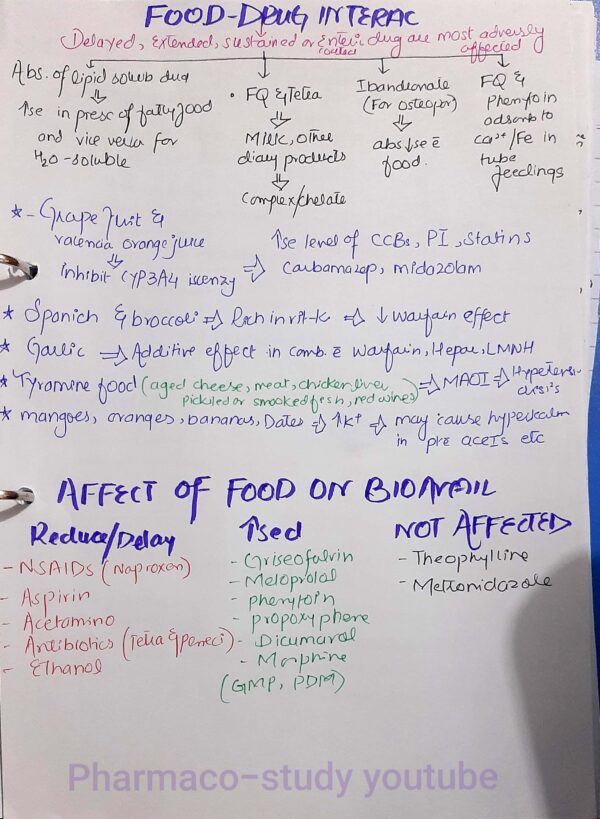 FOOD-DRUG INTERAC
Delayed, Extended, sustained or Enteric coated drug are most adversly affected
Abs. of lipid solub dug
⇓
↑se in presc of fatty food
and vice versa for
H₂O-soluble
• FQ & Tetra
⇓
Milk, other
diary products
⇓
Complex/chelate
Ibandronate
(For osteopor)
⇓
abs ↓se c̄
food.
FQ &
Phenytoin
adsorb to
Ca²⁺/Fe in
tube
feedings
* - Grape fruit &
valencia orange juice
⇓
inhibit CYP3A4 isenzy ⇒
↑se level of CCBs, PI, Statins
Carbamazap, midozolam
* Spanich & broccoli ⇒ Rich in vit-k ⇒ ↓ warfain effect
* Garlic ⇒ Additive effect in comb. c̄ warfain, Hepar, LMNH
* Tyramine food (aged cheese, meat, chicken liver, pickled or smocked fresh, red wines) ⇒ MAOI ⇒ Hypertensi-crisis
* mangoes, oranges, bananas, Dates ⇒ ↑K⁺ ⇒ may cause hyperkalm
in pre ACEIs etc
AFFECT OF FOOD ON BIOAVAIL
Reduce/Delay
- NSAIDs (Naproxen)
- Aspirin
- Acetamino
- Antibiotics (Tetra & peneci)
- Ethanol
↑sed
- Griseofulvin
- Metoprolol
- phenytoin
- propoxyphene
- Dicumarol
- Morphine
(GMP, PDM)
NOT AFFECTED
- Theophylline
- Metronidazole
Pharmaco-study youtube